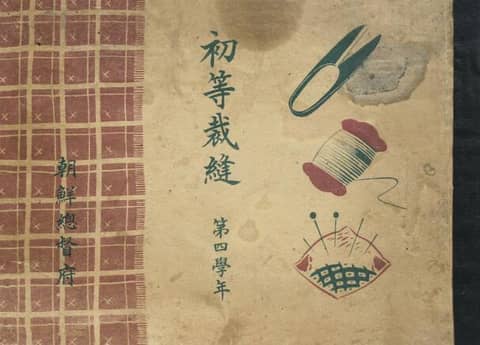 初等裁縫
第四學年
朝鮮總督府